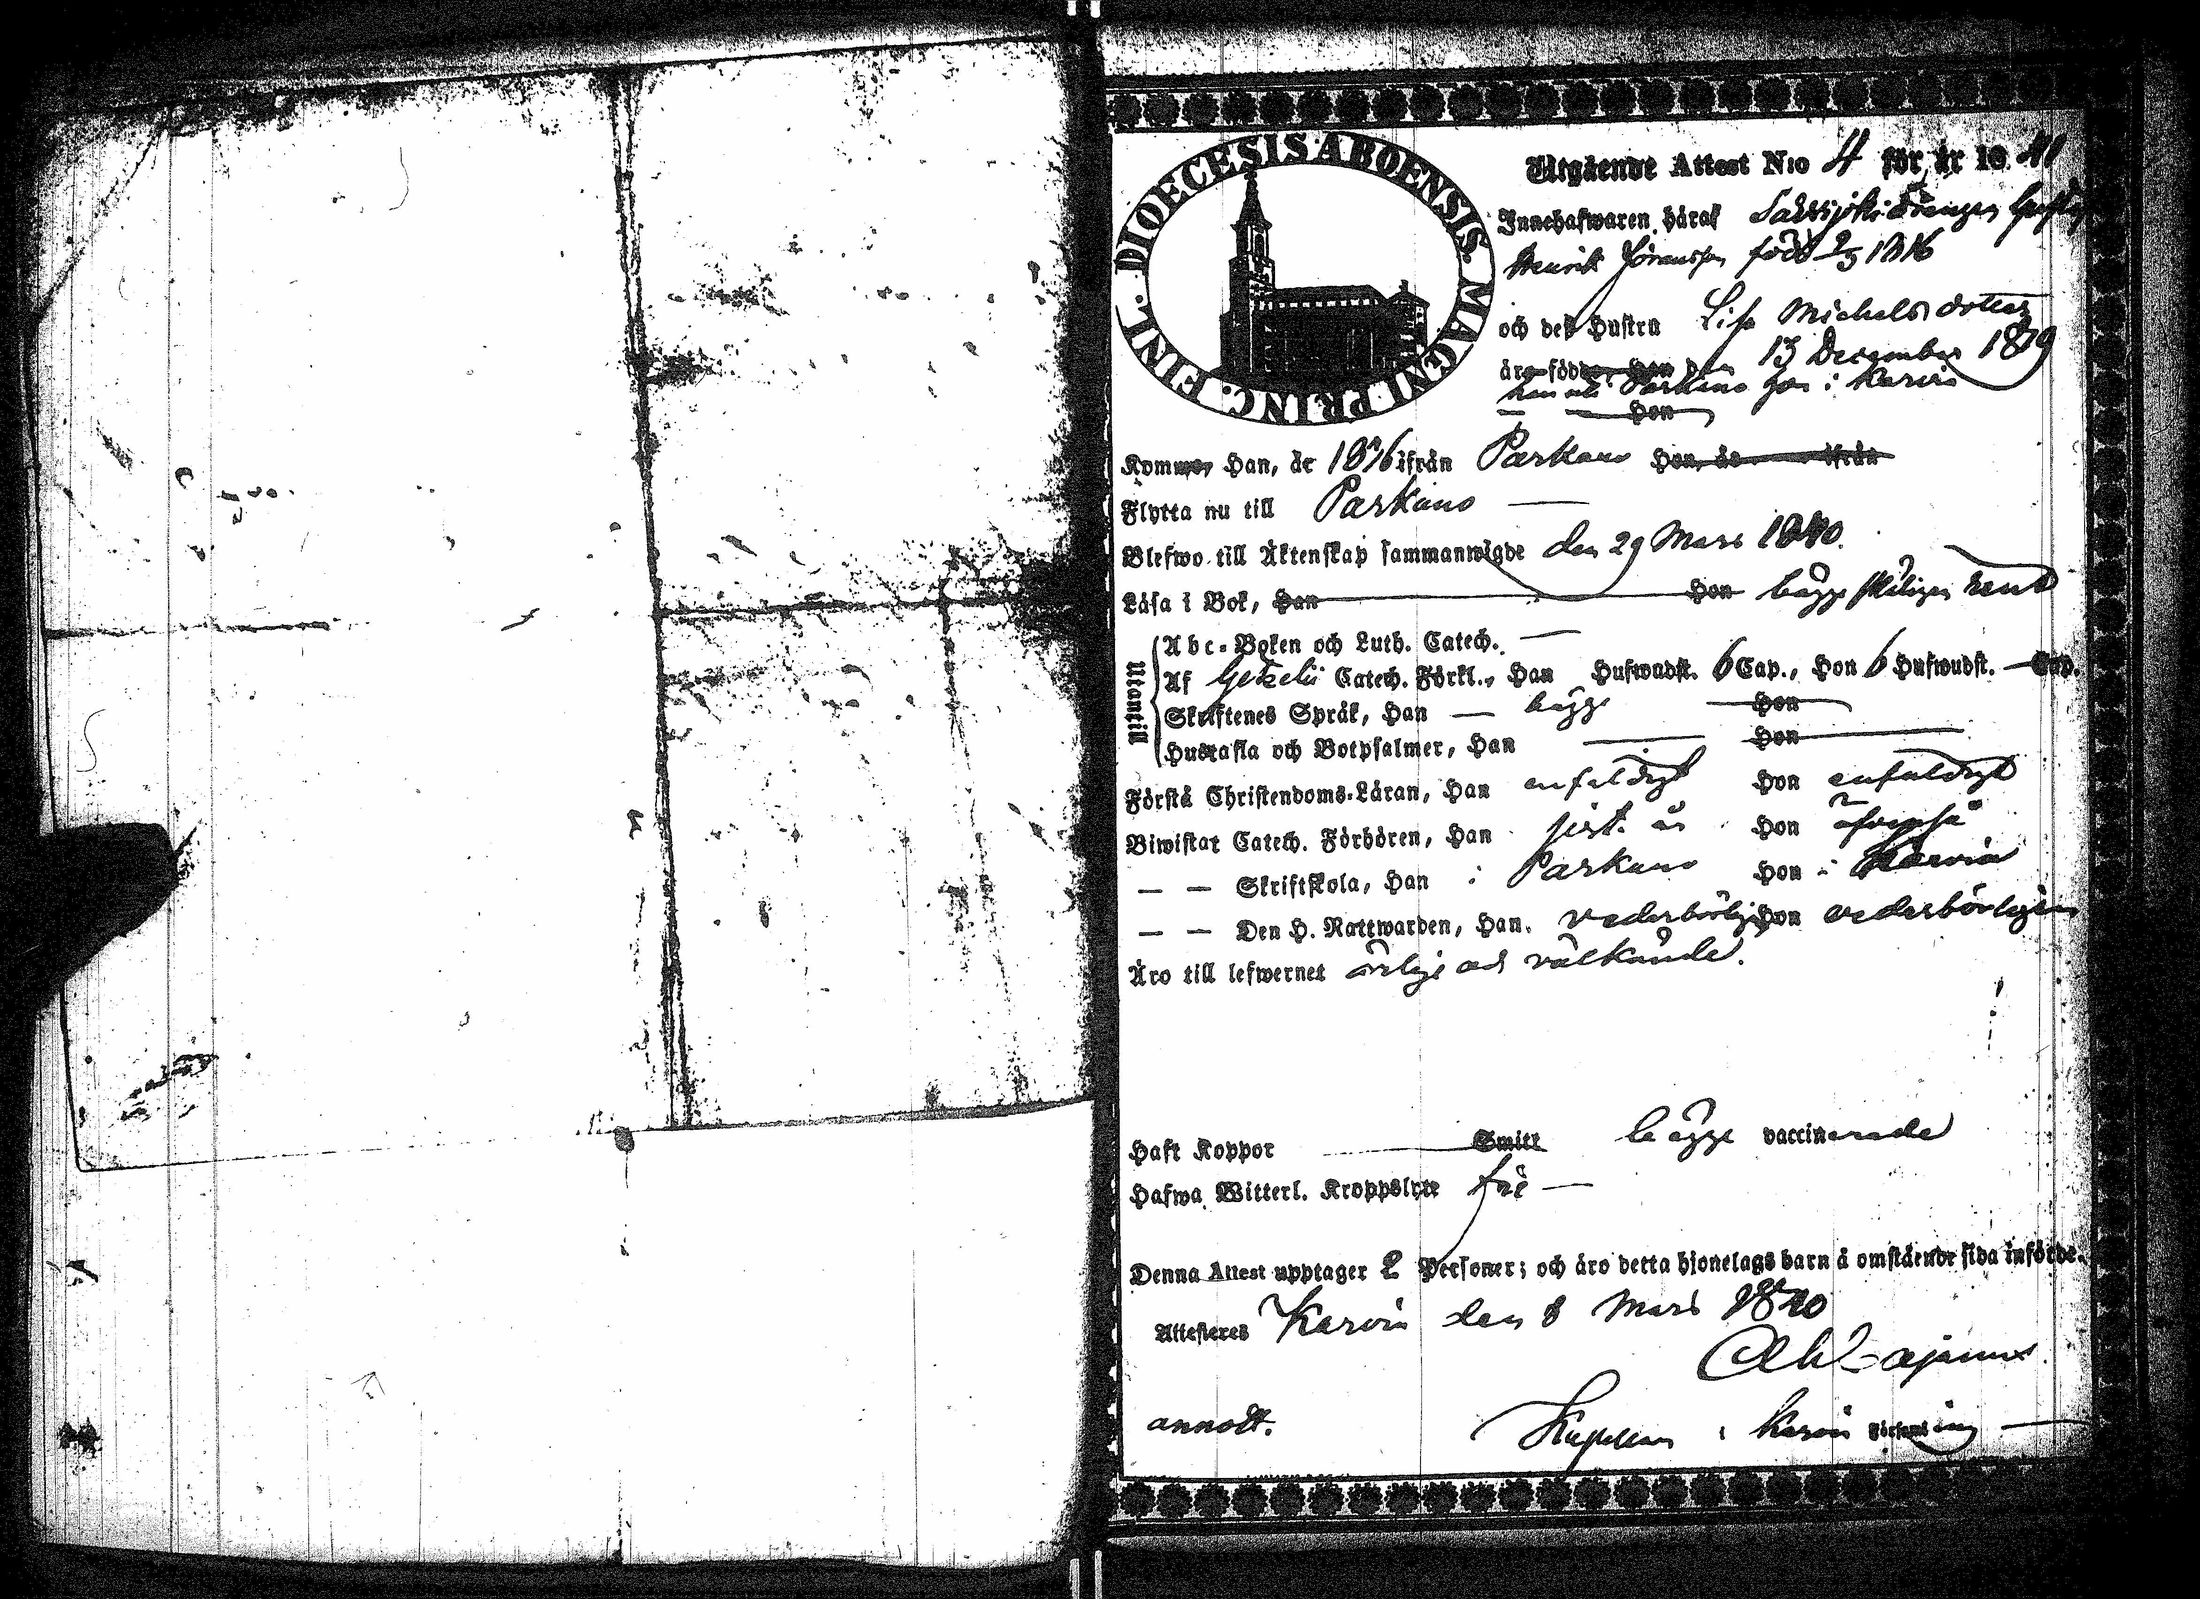 DIOECESIS ABOENSIS. MAGNI PRINC. FINL.
Utgående Attest N:o 4 för år 18 40
Innehafwaren häraf drängen
Henrik Göransson född
och deß Hustru Lisa Michelsdotter
äro födde, Han den 13 December 1819
han uti Parkano hon i Karvia
Hon
Kommo, Han, år ifrån Parkano Hon, år ifrån
Flytta nu till Parkano
Blefwo till Äktenskap sammanwigde den 29 Mars 1840.
Läsa i Bok, Han Hon bägge skäligen rent
Utantill
Abc-Boken och Luth. Catech.
Af Gezelii Catech. Förkl., Han Hufwudst. 6 Cap., Hon 6 Hufwudst. Cap.
Skriftenes Språk, Han bägge Hon
Hustafla och Botpsalmer, Han Hon
Förstå Christendoms-Läran, Han enfaldigt Hon enfaldigt
Biwistat Catech. Förhören, Han Hon äfvenså
— — Skriftskola, Han i Parkano Hon i Karvia
— — Den H. Nattwarden, Han. vederbörligen Hon vederbörligen
Äro till lefwernet ärlige och välkände.
Haft Koppor Smitt bägge vaccinerade
Hafwa Witterl. Kroppslyte frie
Denna Attest upptager 2 Personer; och äro detta hjonelags barn å omstående sida införde.
Attesteras Karvia den 8 Mars 1840
annodt. i Karvia Församling